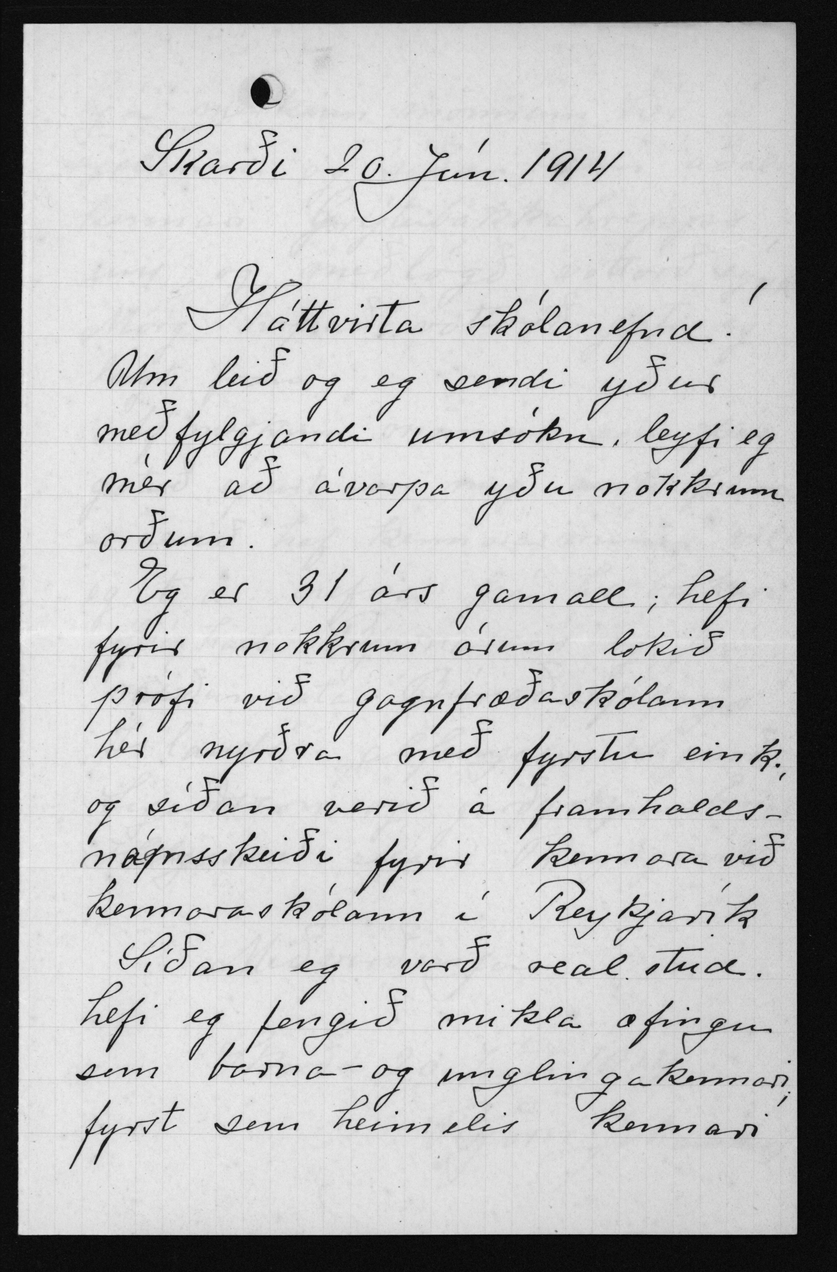 Skarði 20. Jún. 1914
Háttvirta skólanefnd!
Um leið og eg sendi yður
meðfylgjandi umsókn, leyfi eg
mér að ávarpa yður nokkrum
orðum.
Eg er 31 árs gamall; hefi
fyrir nokkrum árum lokið
prófi við gagnfræðaskólann
hér nyrðra með fyrstu eink.,
og síðan verið á framhalds-
námsskeiði fyrir kennara við
kennaraskólann í Reykjavík
Síðan eg varð real. stud.
hefi eg fengið mikla æfingu
sem barna- og unglingakennari;
fyrst sem heimilis kennari